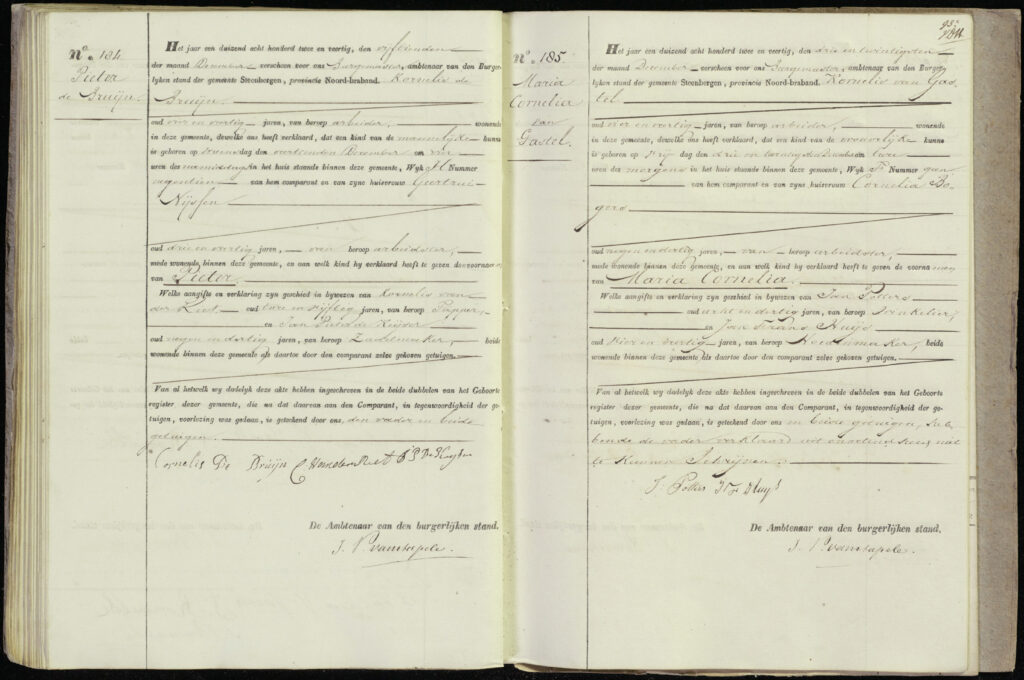 No. 184
Pieter
de Bruijn.
Het jaar een duizend acht honderd twee en veertig, den vyftienden
der maand December verscheen voor ons Burgemeester, ambtenaar van den Burger-
lyken stand der gemeente Steenbergen, provincie Noord-braband. Kornelis de
Bruijn
oud vier en veertig jaren, van beroep arbeider, wonende
in deze gemeente, dewelke ons heeft verklaard, dat een kind van de mannelyke kunne
is geboren op dag den December om vier
uren des namiddags in het huis staande binnen deze gemeente, Wyk H Nummer
negentien van hem comparant en van zyne huisvrouw Geertrui
Nijssen
oud drie en veertig jaren, van beroep arbeidster,
mede wonende binnen deze gemeente, en aan welk kind hy verklaard heeft te geven den voornaam
van Pieter.
Welke aangifte en verklaring zyn geschied in bywezen van Kornelis van
der Riet, oud twee en vyftig jaren, van beroep Tapper,
en Jan de Keijser
oud negen en dertig jaren, van beroep Zadelmaker, beide
wonende binnen deze gemeente als daartoe door den comparant zelve gekozen getuigen.
Van al hetwelk wy dadelyk deze akte hebben ingeschreven in de beide dubbelen van het Geboorte
register dezer gemeente, die na dat daarvan aan den Comparant, in tegenwoordigheid der ge-
tuigen, voorlezing was gedaan, is geteekend door ons, den vader en beide
getuigen.
Cornelis De Bruijn C
De Ambtenaar van den burgerlijken stand.
No. 185
Maria
Cornelia
van
Gastel.
Het jaar een duizend acht honderd twee en veertig, den drie en twintigsten
der maand December verscheen voor ons Burgemeester, ambtenaar van den Burger-
lyken stand der gemeente Steenbergen, provincie Noord-braband. Kornelis van Gas
tel
oud vier en veertig jaren, van beroep arbeider, wonende
in deze gemeente, dewelke ons heeft verklaard, dat een kind van de vrouwelyke kunne
is geboren op Vrydag den drie en twintigsten December om twee
uren des morgens in het huis staande binnen deze gemeente, Wyk Nummer
van hem comparant en van zyne huisvrouw Cornelia Bo
gers
oud negen en dertig jaren, van beroep arbeidster,
mede wonende binnen deze gemeente, en aan welk kind hy verklaard heeft te geven de voornamen
van Maria Cornelia.
Welke aangifte en verklaring zyn geschied in bywezen van Jan Potters
oud acht en dertig jaren, van beroep Winkelier,
en Jan Frans Huijs
oud vier en veertig jaren, van beroep Hoedenmaker, beide
wonende binnen deze gemeente als daartoe door den comparant zelve gekozen getuigen.
Van al hetwelk wy dadelyk deze akte hebben ingeschreven in de beide dubbelen van het Geboorte
register dezer gemeente, die na dat daarvan aan den Comparant, in tegenwoordigheid der ge-
tuigen, voorlezing was gedaan, is geteekend door ons en beide getuigen, heb
bende de vader verklaard uit niet
te kunnen schrijven.
J. Potters J F Huijs
De Ambtenaar van den burgerlijken stand.